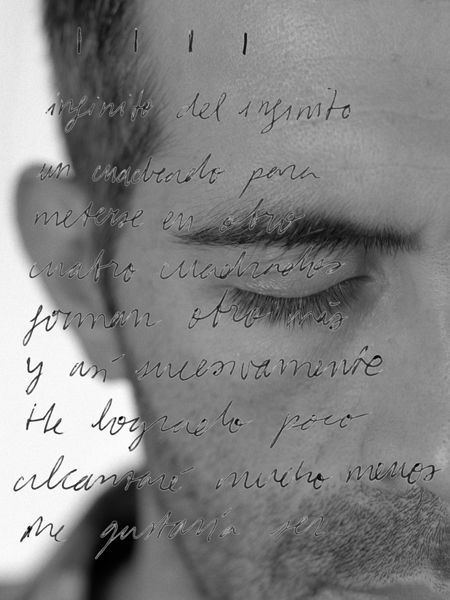 | | | |
infinito del infinito
un cuadrado para
meterse en otro
cuatro cuadrados
forman otro más
y así sucesivamente
He logrado poco
alcanzaré mucho menos
Me gustaría ser